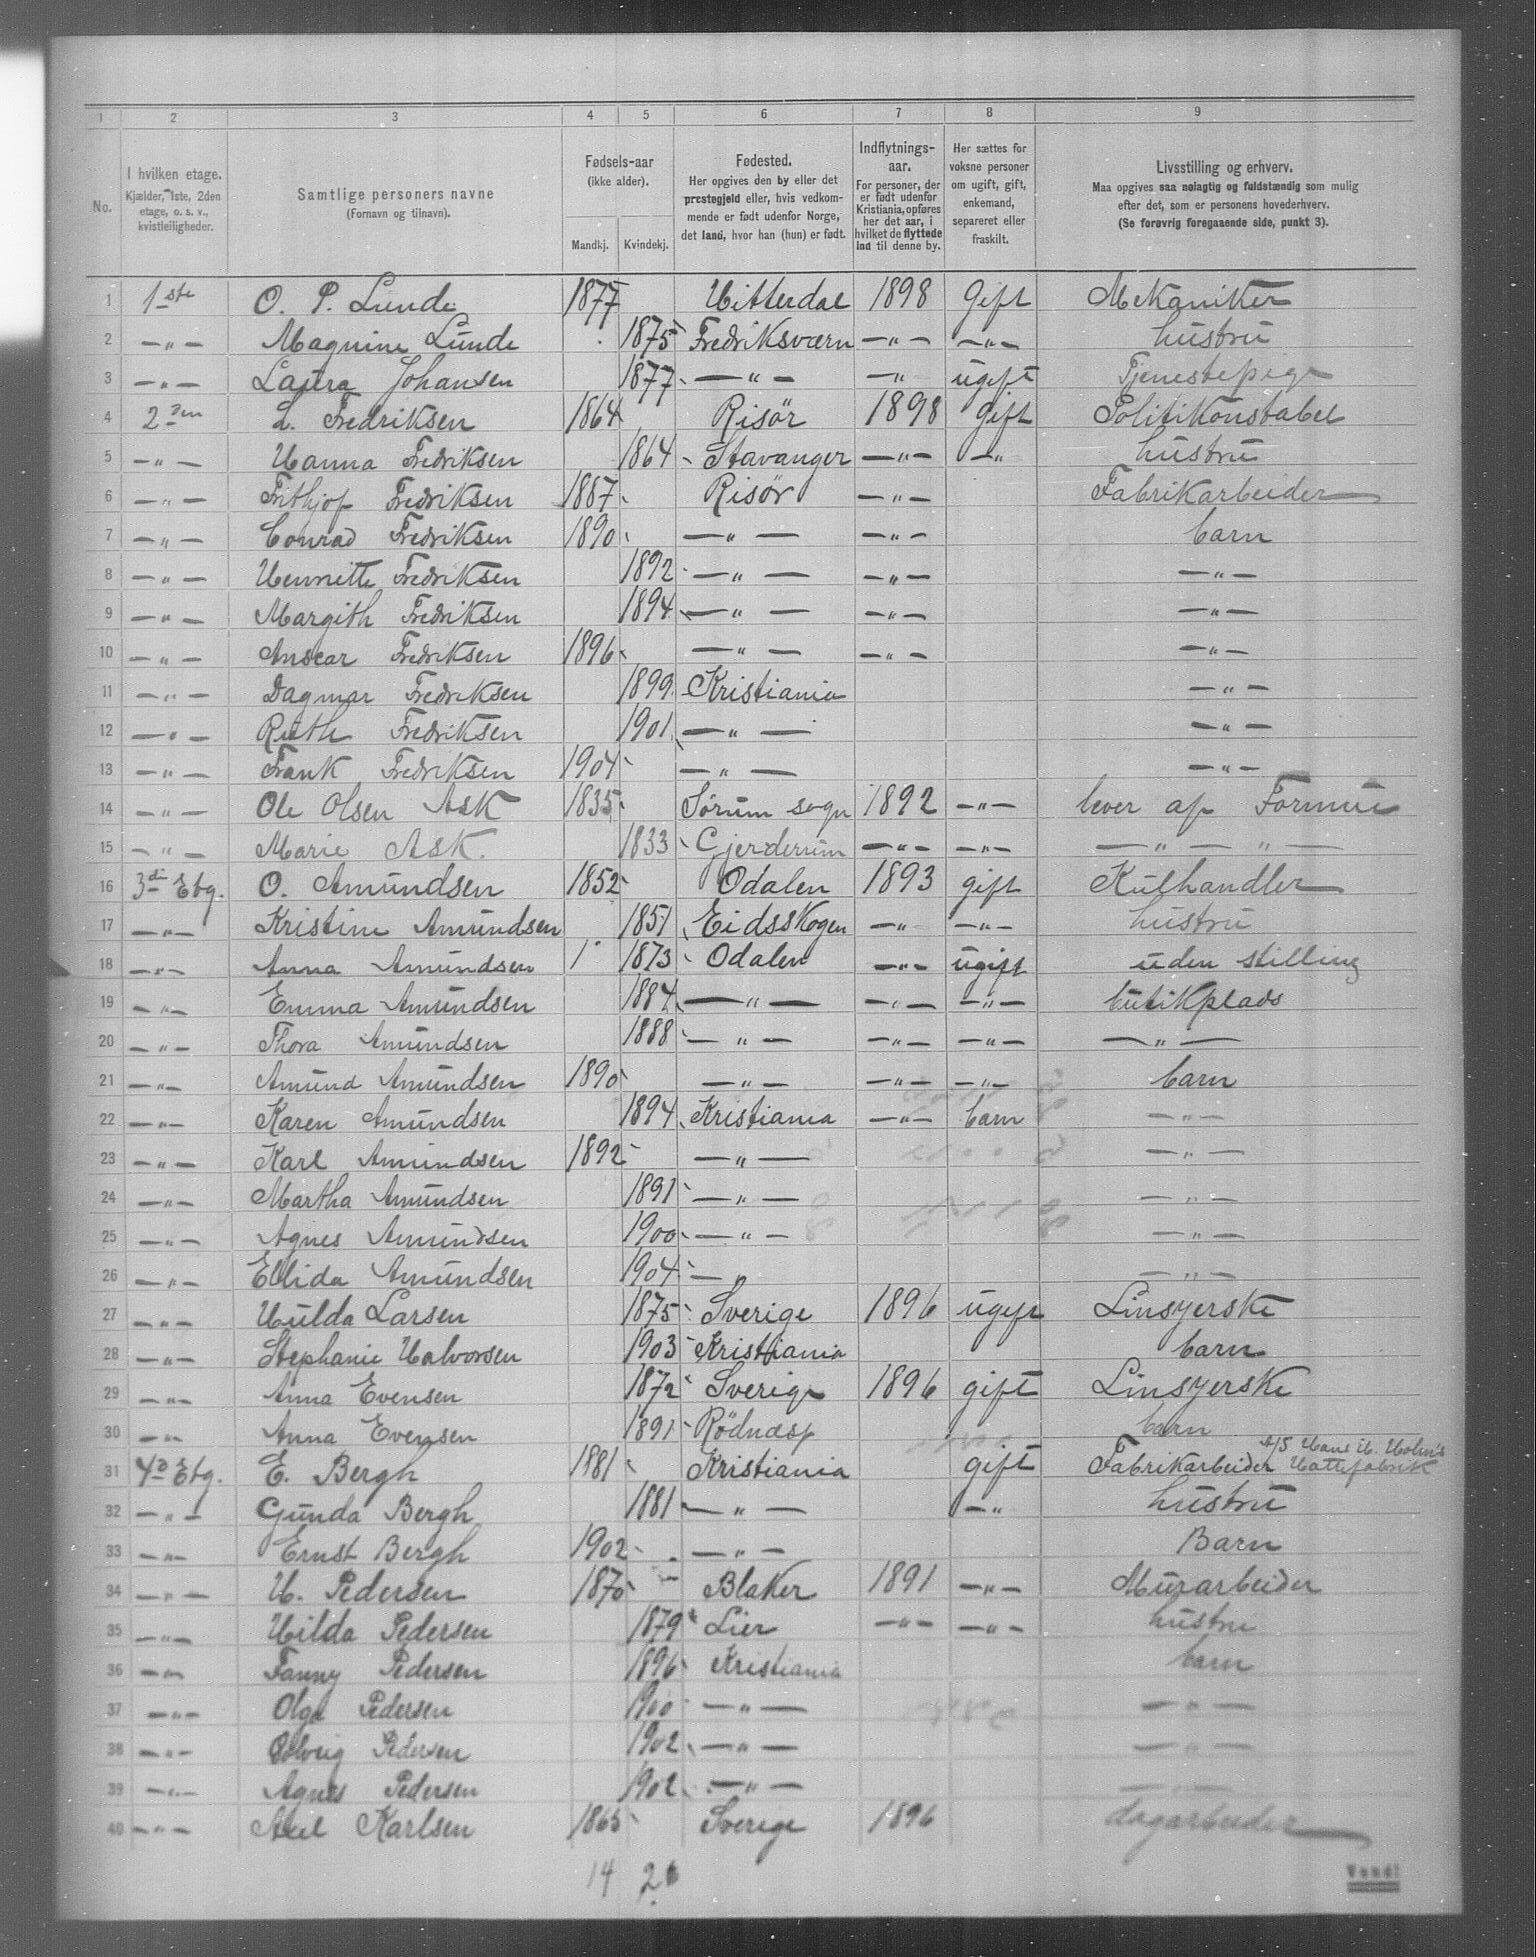 1 2 3 4 5 6 7 8 9
No. I hvilken etage. Kjælder, 1ste, 2den etage, o. s. v., kvistleiligheder. Samtlige personers navne (Fornavn og tilnavn). Fødsels-aar (ikke alder). Mandkj. Kvindekj. Fødested. Her opgives den by eller det prestegjeld eller, hvis vedkommende er født udenfor Norge, det land, hvor han (hun) er født. Indflytningsaar. For personer, der er født udenfor Kristiania, opføres her det aar, i hvilket de flyttede ind til denne by. Her sættes for voksne personer om ugift, gift, enkemand, separeret eller fraskilt. Livsstilling og erhverv. Maa opgives saa nøiagtig og fuldstændig som mulig efter det, som er personens hovederhverv. (Se forøvrig foregaaende side, punkt 3).
1 1ste O. P. Lunde 1877 Hitterdal 1898 Gift Mekaniker
2 —"— Magnine Lunde 1875 Fredriksværn —"— —"— hustru
3 —"— Laura Johansen 1877 —"— —" ugift Tjenestepige
4 2den L. Fredriksen 1864 Risör 1898 Gift Politikonstabel
5 —"— Hanna Fredriksen 1864 Stavanger —"— —"— hustru
6 —"— Frithjof Fredriksen 1887 Risör —"— Fabrikarbeider
7 —"— Conrad Fredriksen 1890 —"— —"— barn
8 —"— Henriette Fredriksen 1892 —"— —"— —"—
9 —"— Margith Fredriksen 1894 —"— —"— —"—
10 —"— Anscar Fredriksen 1896 —"— —"— —"—
11 —"— Dagmar Fredriksen 1899 Kristiania —"—
12 —"— Ruth Fredriksen 1901 —"— —"—
13 —"— Frank Fredriksen 1904 —"— —"—
14 —"— Ole Olsen Ask 1835 Sörum sogn 1892 —"— lever af Formue
15 —"— Marie Ask. 1833 Gjerderum —"— —"— —"—"—
16 3die Etg. O. Amundsen 1852 Odalen 1893 gift Kulhandler
17 —"— Kristine Amundsen 1851 Eidsskogen —"— —"— hustru
18 —"— Anna Amundsen 1 1873 Odalen —"— ugift uden stilling
19 —"— Emma Amundsen 1884 —"— —"— —"— butikplads
20 —"— Thora Amundsen 1888 —"— —"— —"— —"—
21 —"— Amund Amundsen 1890 —"— —"— —"— barn
22 —"— Karen Amundsen 1894 Kristiania —"— barn —"—
23 —"— Karl Amundsen 1892 —"— —"—
24 —"— Martha Amundsen 1891 —"— —"—
25 —"— Agnes Amundsen 1900 —"— —"—
26 —"— Ellida Amundsen 1904 —"— —"—
27 —"— Hulda Larsen 1875 Sverige 1896 ugift Linsyerske
28 —"— Stephanie Halvorsen 1903 Kristiania barn
29 —"— Anna Evensen 1872 Sverige 1896 gift Linsyerske
30 —"— Anna Evensen 1891 barn
31 4de Etg. E. Bergh 1881 Kristiania gift Fabrikarbeider A/S Hans H. Holm's Hattefabrik
32 —"— Gunda Bergh 1881 —"— —"— hustru
33 —"— Ernst Bergh 1902 —"— Barn
34 —"— H. Pedersen 1870 Blaker 1891 —"— Murarbeider
35 —"— Hilda Pedersen 1879 Lier —"— —"— hustru
36 —"— Fanny Pedersen 1896 Kristiania barn
37 —"— Olga Pedersen 1900 —"— —"—
38 —"— Solveig Pedersen 1902 —"— —"—
39 —"— Agnes Pedersen 1902 —"— —"—
40 —"— Axel Karlsen 1865 Sverige 1896 dagarbeider
14 26
Vend!